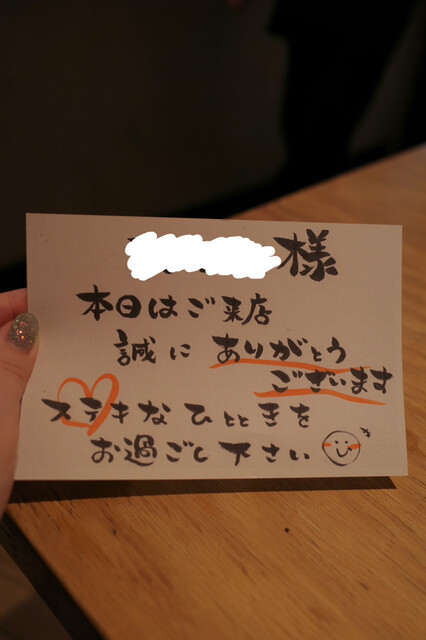 様
本日はご来店
誠に ありがとう
ございます
ステキな ひとときを
お過ごし下さい